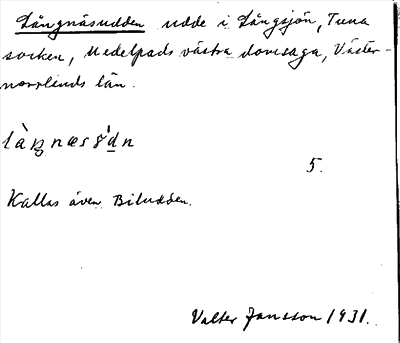 Långnäsudden udde i Långsjön, Tuna
socken, Medelpads västra domsaga, Väster-
norrlands län.
5.
Kallas även Biludden.
Valter Jansson 1931.